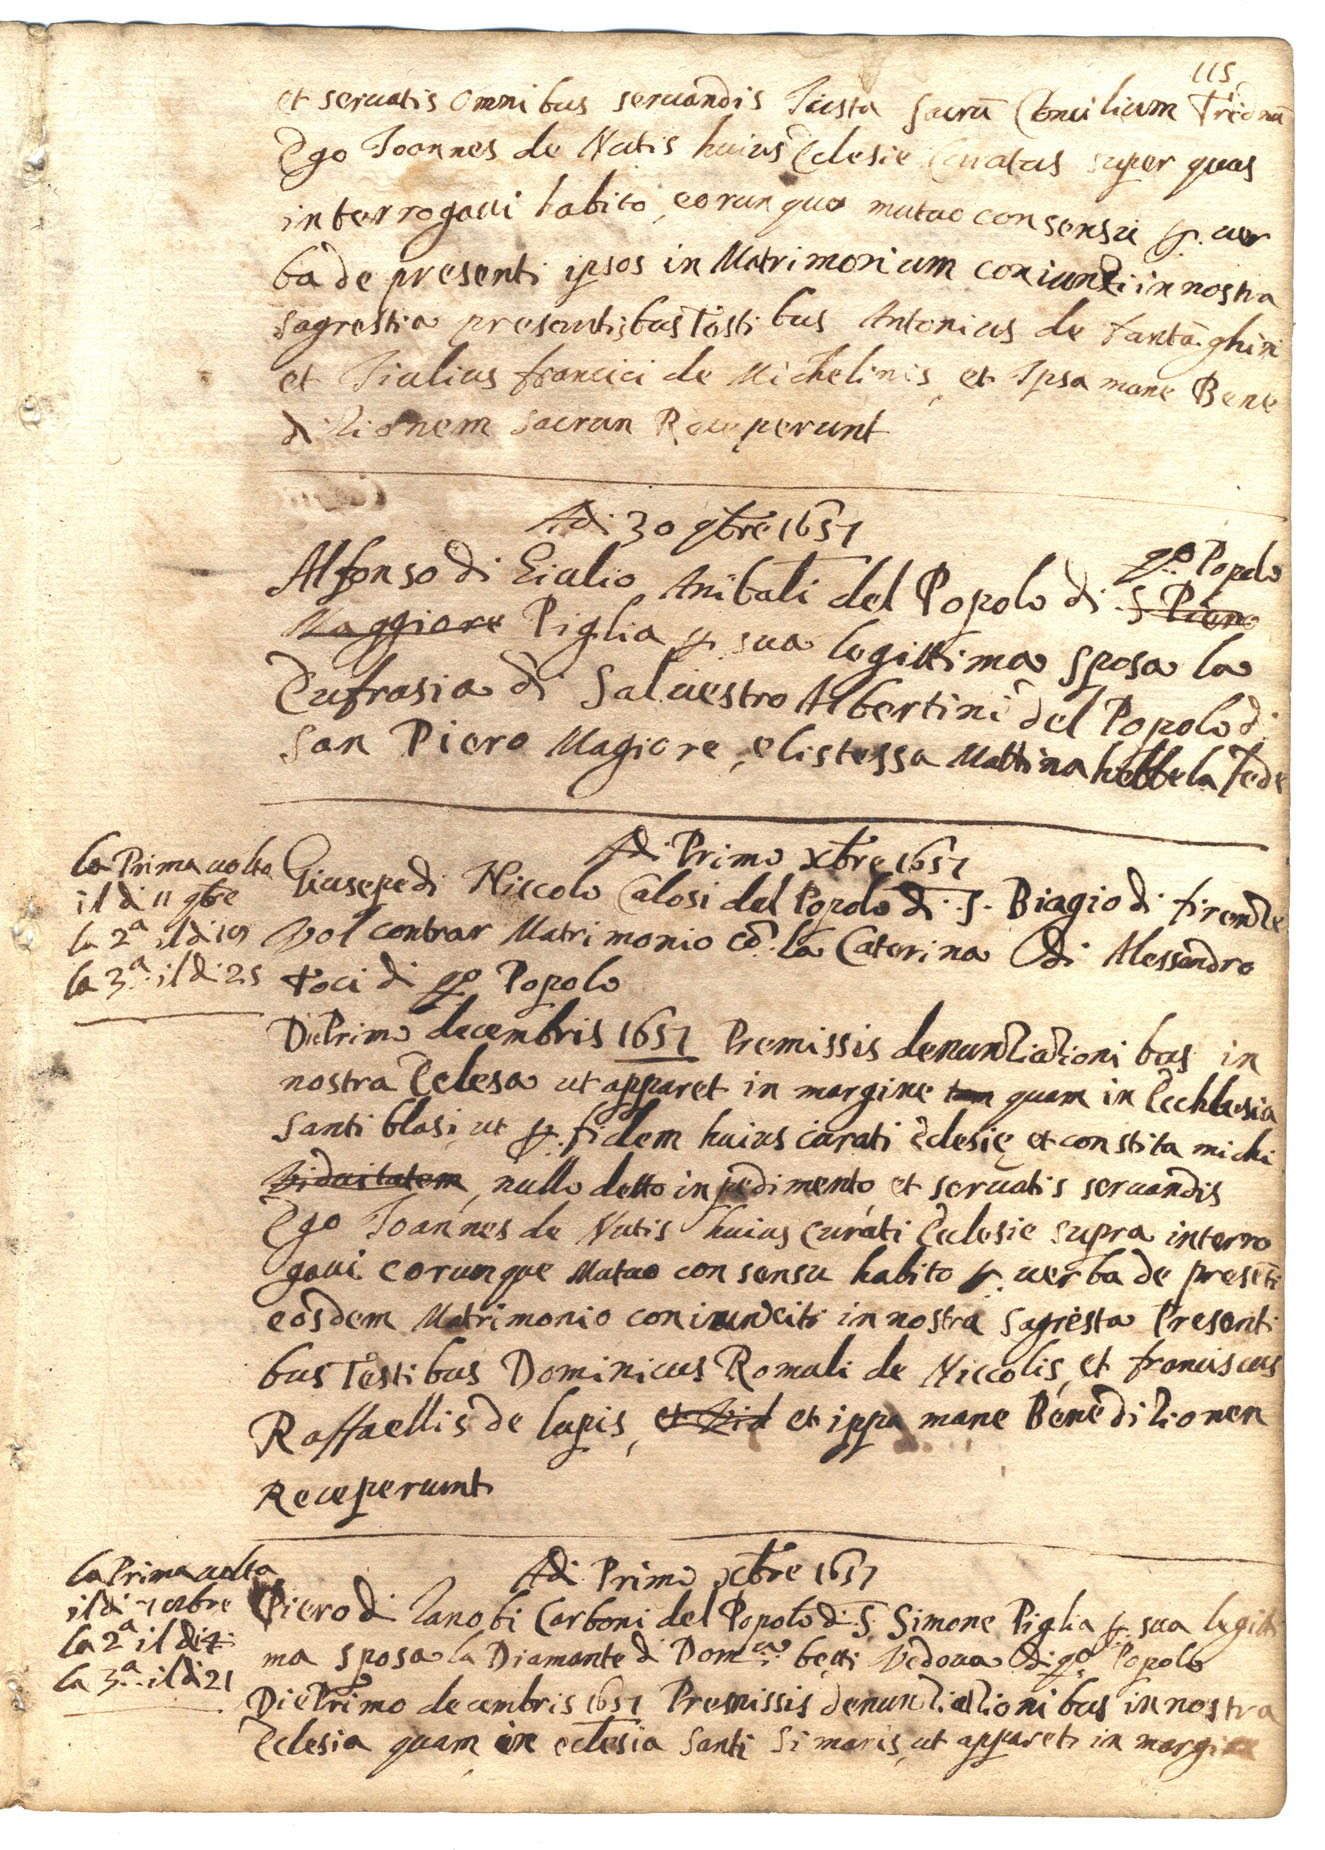 115
et seruatis omnibus seruandis Iusta sacrū Conciluum Tridnū
Ego Ioannes de Nutis huius Eclesie Curatus super quas
interrogaui habito, eorunque mutuo consensu p. uer
ba de presenti ipsos in Matrimonium coniunti in nostra
sagrestia presentisbus Testibus Antonius de Fantāghini
et Iiulius francici de Michelinis, et Ipsa mane Bene
ditionem sacrun Receperunt
Adi 30 9bre 1657
Alfonso di Giulio Anibali del Popolo di qo. Popolo
S Piero
Maggiore Piglia p. sua legittima sposa la
Eufrasia di Saluestro Albertini del Popolo di
San Piero Magiore, e listessa Mattina hebbe la Fede
Adi Primo Xbre 1657
la Prima uolta
il di 11 9bre
la 2a il di 19
la 3a. il di 25
Giusepe di Niccolo Calosi del Popolo di S. Biagio di firenze
Vol contrar Matrimonio cō. la Caterina di Alessandro
Toci di qo Popolo
Die Primo decembris 1657 Premissis denuntiationibus in
nostra Eclesa ut apparet in margine tam quam in Ecchlesia
Santi blasi, ut p. fidem huius curati Eclesie et constita michi
Viduitatem, nullo detto inpedimento et seruatis seruandis
Ego Ioannes de Nutis huius curati Eclesie supra interro
gaui eorumque Mutuo consensu habito p. uerba de presēti
eosdem Matrimonio coniunciti in nostra sagresta Presenti
bus Testibus Dominicus Romuli de Niccolis, et franciscus
Raffaellis de lupis, et Vid et ippa mane Beneditionen
Receperunt
Adi Primo Xbre 1657
la Prima uolta
il di 9bre
la 2a il di
la 3a. il di 21
Piero di Zanobi Carboni del Popolo di S. Simone Piglia p. sua legitti
ma sposa la Diamante di Domco. betti Vedoua di qo. Popolo
Die Primo decembris 1657 Premissis denuntiationibus in nostra
Eclesia quam, in eclesia Santi Simonis, ut apparet in margine